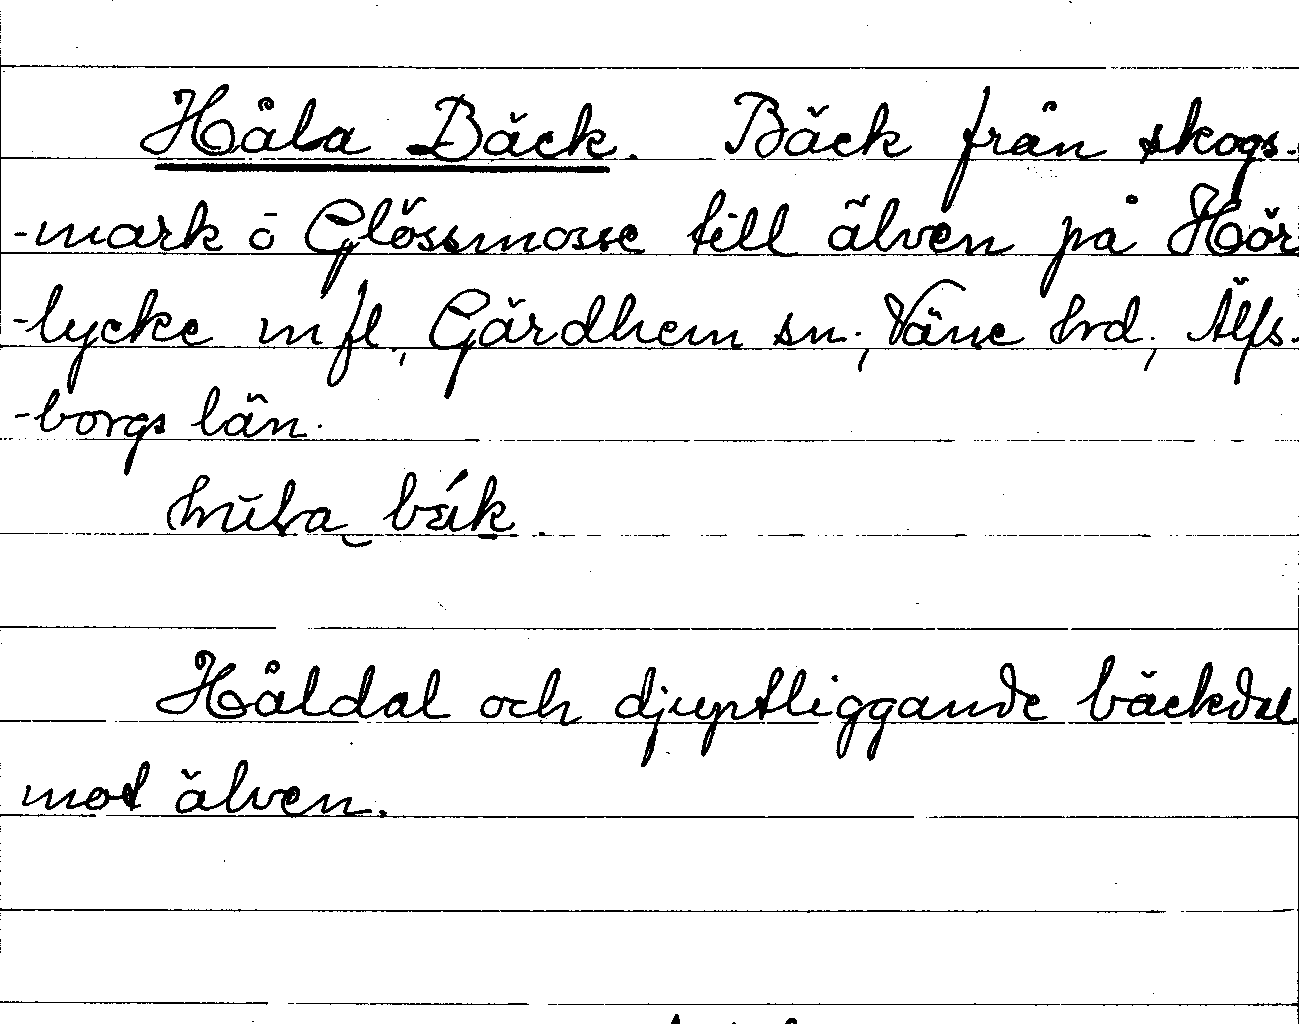 Håla Bäck. Bäck från skogs-
-mark ö Glössmosse till älven på Hör
-lycke m fl., Gärdhem sn., Väne hrd, Älfs-
-borgs län.
Håldal och djuptliggande bäckdal
mot älven.